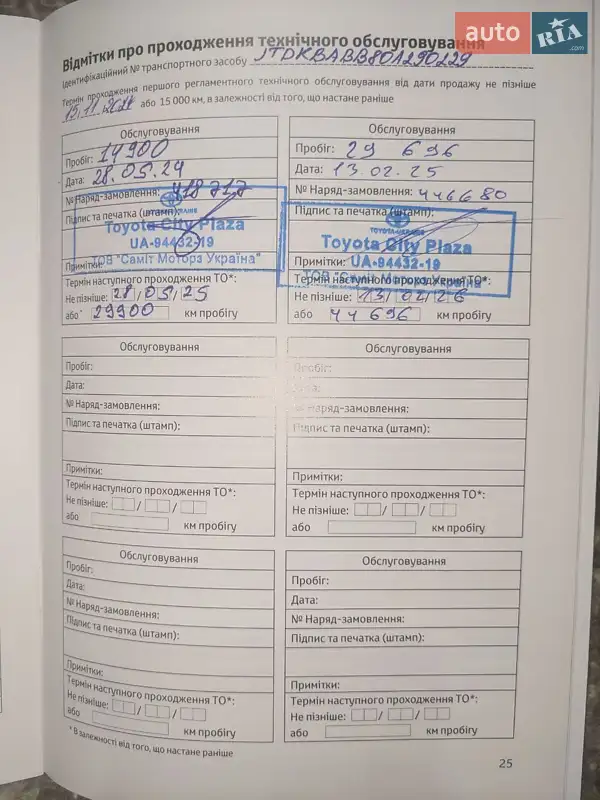 auto RIA .com
Відмітки про проходження технічного обслуговування
Ідентифікаційний № транспортного засобу JTDKBABB80A290229
Термін проходження першого регламентного технічного обслуговування від дати продажу не пізніше
або 15 000 км, в залежності від того, що настане раніше
Обслуговування
Пробіг: 14900
Дата: 28.05.24
№ Наряд-замовлення: 418717
Підпис та печатка (штамп):
Toyota City Plaza
UA-94432-19
ТОВ "Саміт Моторз Україна"
Примітки:
Термін наступного проходження ТО*:
Не пізніше: 28/05/25
або* 29900 км пробігу
Обслуговування
Пробіг: 29 696
Дата: 13.02.25
№ Наряд-замовлення: 446680
Підпис та печатка (штамп):
Toyota City Plaza
Примітки: UA-94432-19
ТОВ "Саміт Моторз Україна"
Термін наступного проходження ТО*:
Не пізніше: 13/02/26
або 44 696 км пробігу
Обслуговування
Пробіг:
Дата:
№ Наряд-замовлення:
Підпис та печатка (штамп):
Примітки:
Термін наступного проходження ТО*:
Не пізніше: / /
або км пробігу
Обслуговування
Пробіг:
Дата:
№ Наряд-замовлення:
Підпис та печатка (штамп):
Примітки:
Термін наступного проходження ТО*:
Не пізніше: / /
або км пробігу
Обслуговування
Пробіг:
Дата:
№ Наряд-замовлення:
Підпис та печатка (штамп):
Примітки:
Термін наступного проходження ТО*:
Не пізніше: / /
або км пробігу
Обслуговування
Пробіг:
Дата:
№ Наряд-замовлення:
Підпис та печатка (штамп):
Примітки:
Термін наступного проходження ТО*:
Не пізніше: / /
або км пробігу
* В залежності від того, що настане раніше
25